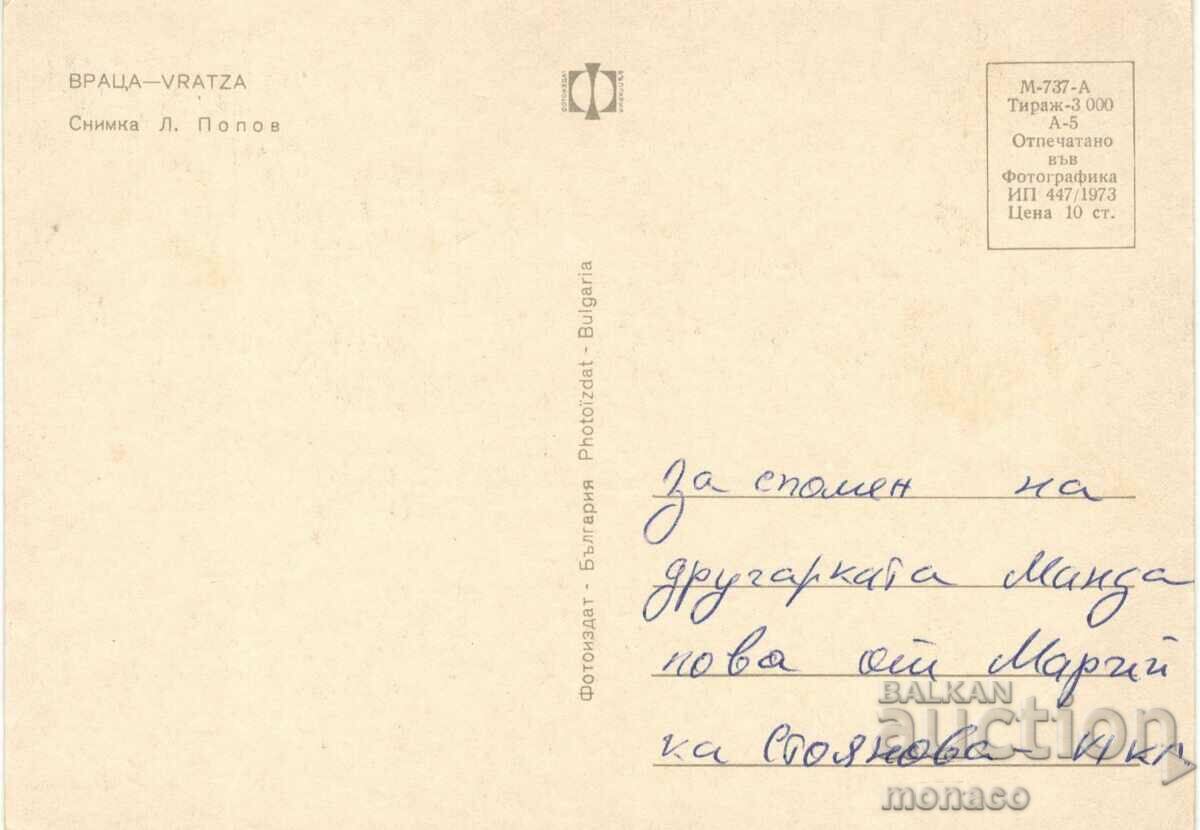 ВРАЦА—VRATZA
Снимка Л. Попов
М-737-А
Тираж-3 000
А-5
Отпечатано
във
Фотографика
ИП 447/1973
Цена 10 ст.
Фотоиздат - България Photoïzdat - Bulgaria
За спомен на
другарката Манда
пова от Маргий
ка Стоянова -
BALKAN
auction
monaco